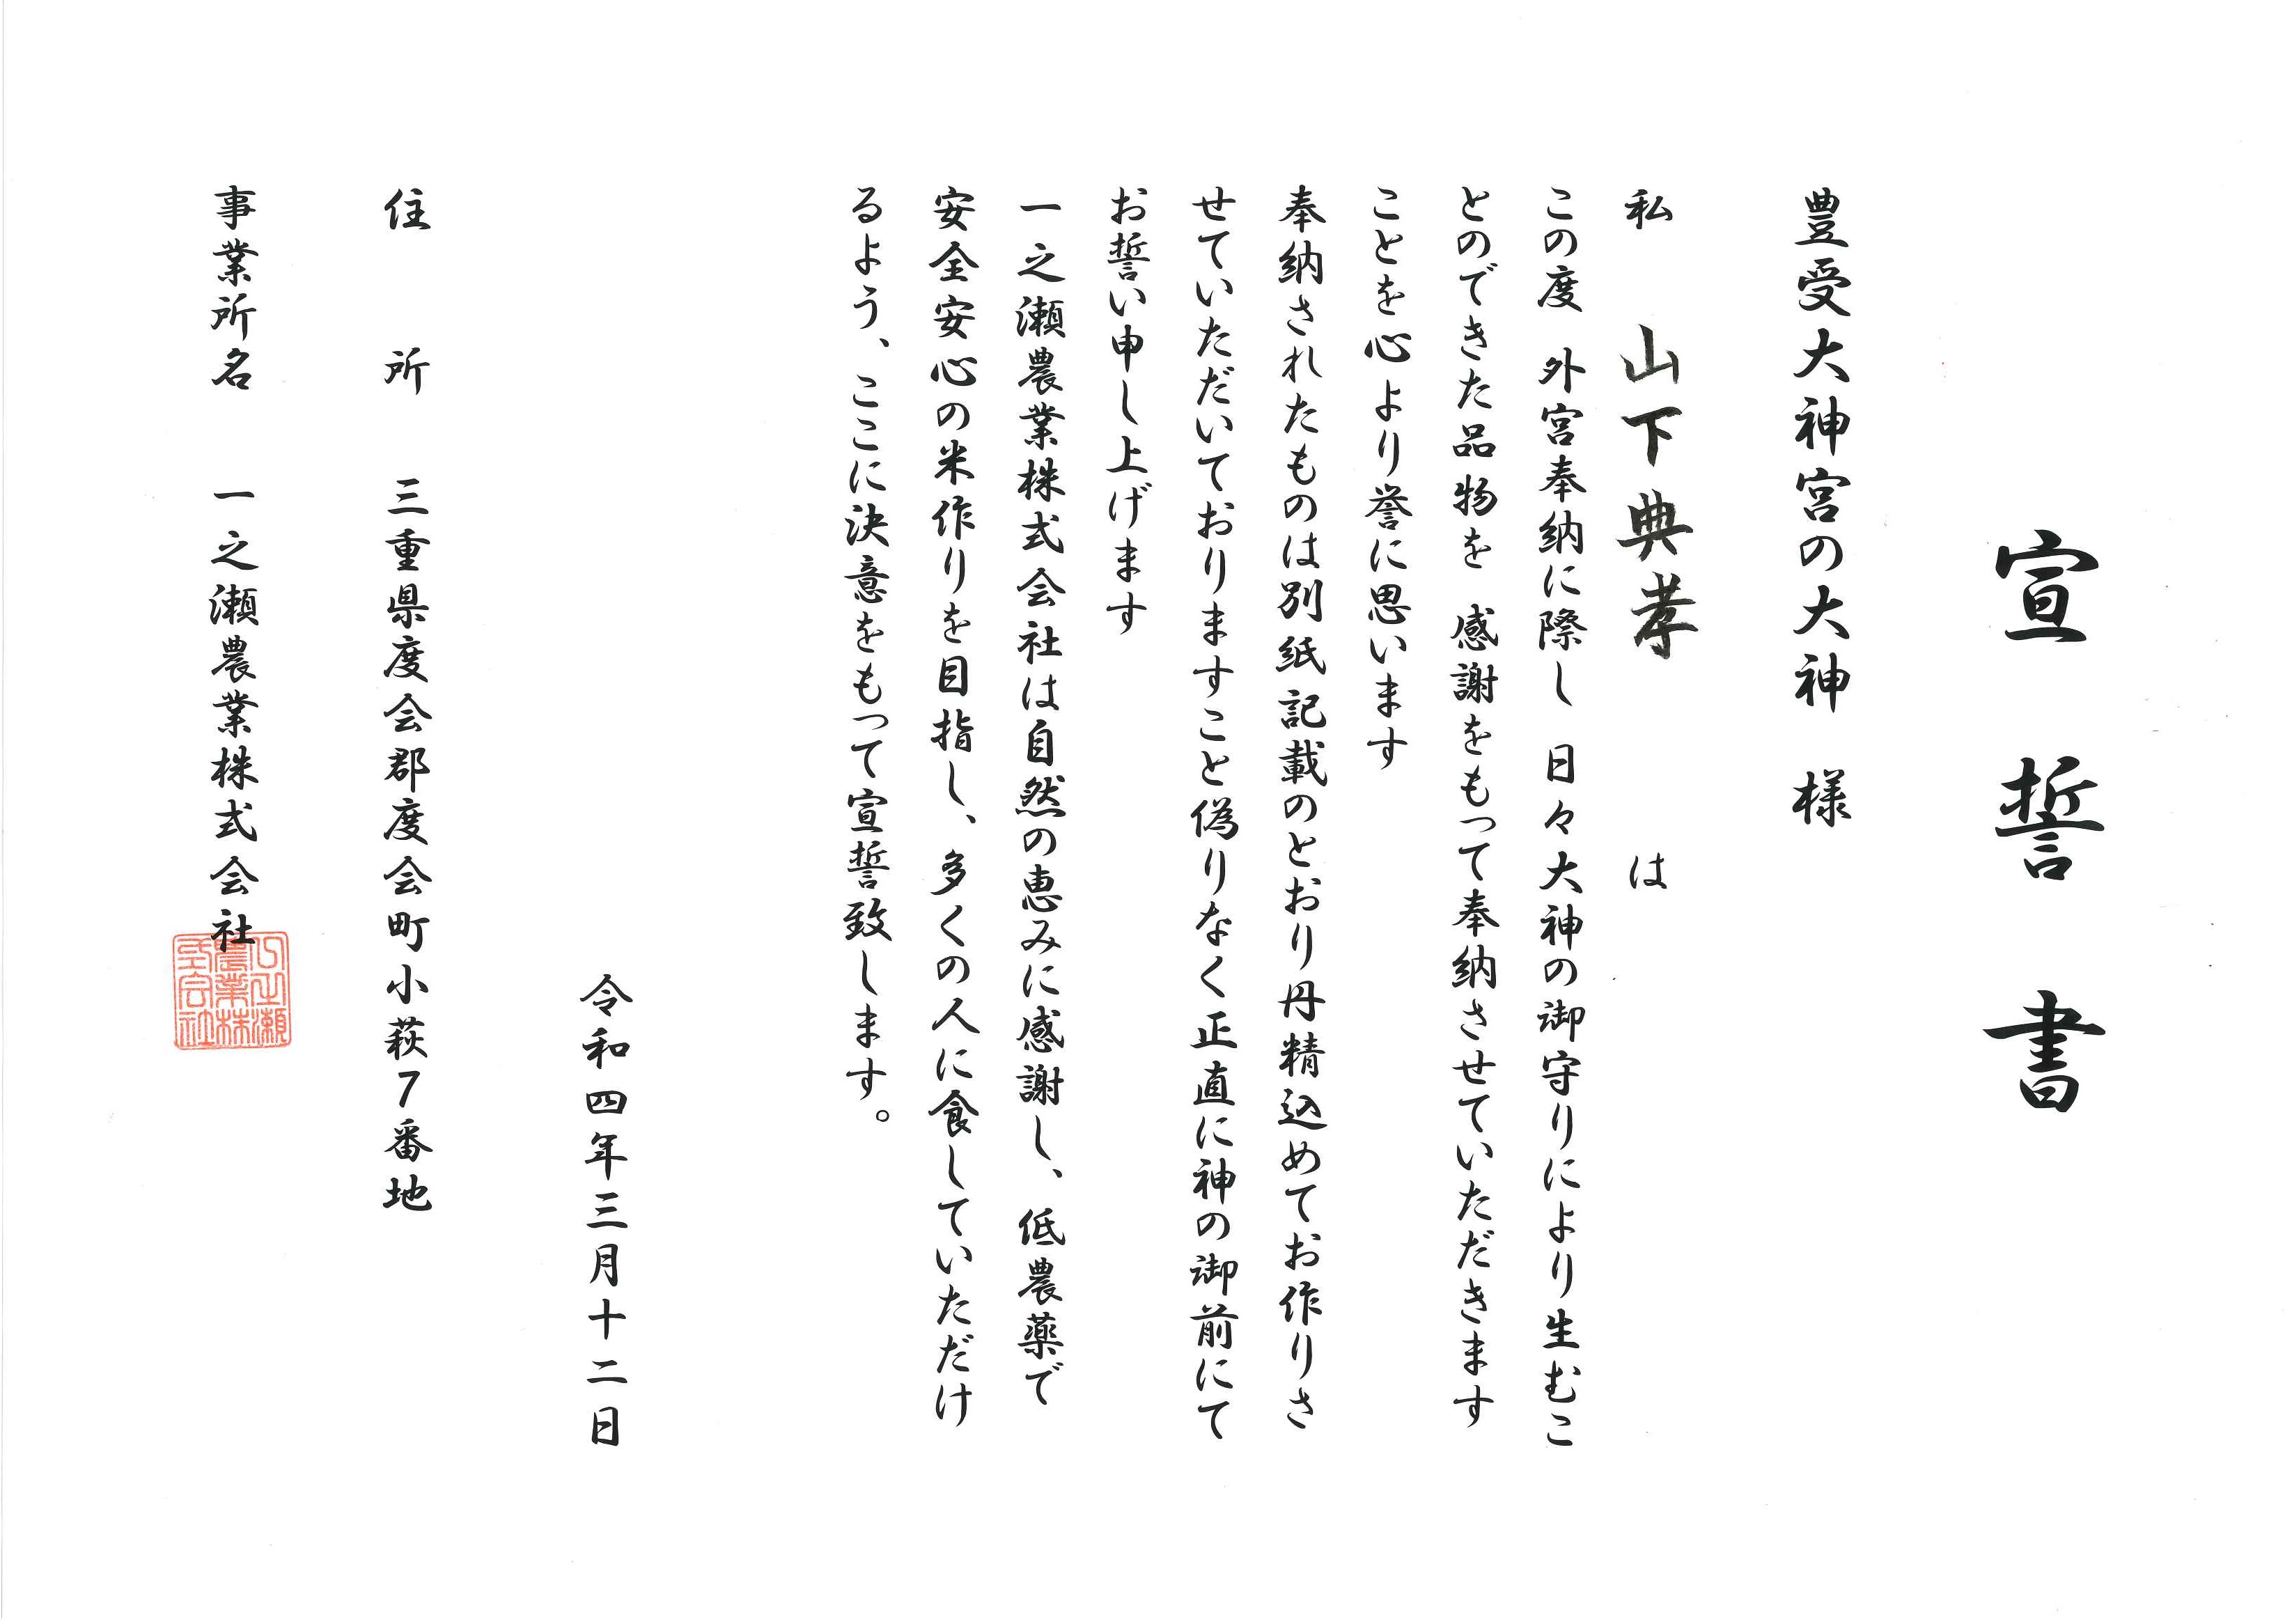 宣誓書
豊受大神宮の大神　様
私　山下典孝　は
この度　外宮奉納に際し　日々大神の御守りにより生むこ
とのできた品物を　感謝をもって奉納させていただきます
ことを心より誉に思います
奉納されたものは別紙記載のとおり丹精込めてお作りさ
せていただいておりますこと偽りなく正直に神の御前にて
お誓い申し上げます
一之瀬農業株式会社は自然の恵みに感謝し、低農薬で
安全安心の米作りを目指し、多くの人に食していただけ
るよう、ここに決意をもって宣誓致します。
令和四年三月十二日
住所　三重県度会郡度会町小萩7番地
事業所名　一之瀬農業株式会社
一之瀬
農業株
式会社